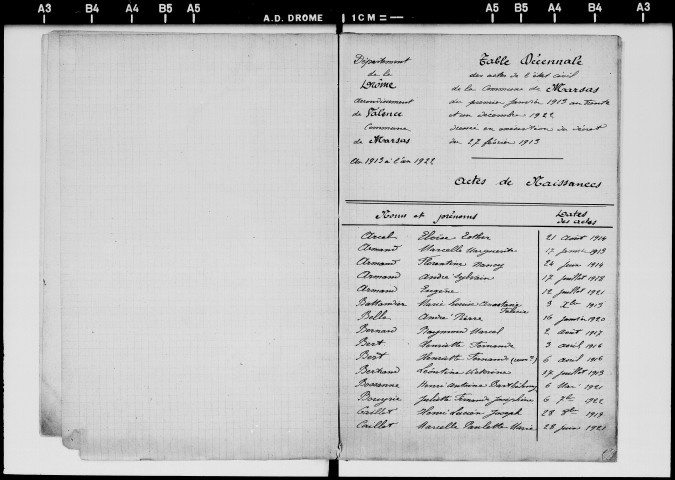 A3 B4 A4 B5 A5 A.D. DROME 1 CM = A5 B5 A4 B4 A3
Département
de la
Drôme
arrondissement
de Valence
Commune
de Marsas
An 1913 à l'an 1922
Table Décennale
des actes de l'état civil
de la Commune de Marsas
du premier janvier 1913 au trente
et un décembre 1922
dressé en exécution du décret
du 27 février 1913
Actes de Naissances
Noms et prénoms Dates des actes
Arcel Eloïse Esther 21 Août 1914
Armand Marcelle Marguerite 17 janvier 1913
Armand Florentine Nancy 24 juin 1914
Armand André Sylvain 17 juillet 1918
Armand Eugène 12 juillet 1921
Battandier Marie Louise Valérie 3 Xbre 1913
Belle André Pierre 16 janvier 1920
Bernard Raymond Marcel 2 Août 1917
Bert Henriette Fernande 3 avril 1916
Bert Henriette Fernande 6 avril 1916
Bertrand Léontine Victorine 17 juillet 1913
Bossanne Henri Antoine Barthélemy 6 Mai 1921
Bouyrie Juliette Fernande Joséphine 6 7bre 1922
Caillet Henri Lucien Joseph 28 8bre 1919
Caillet Marcelle Paulette Marie 28 juin 1921